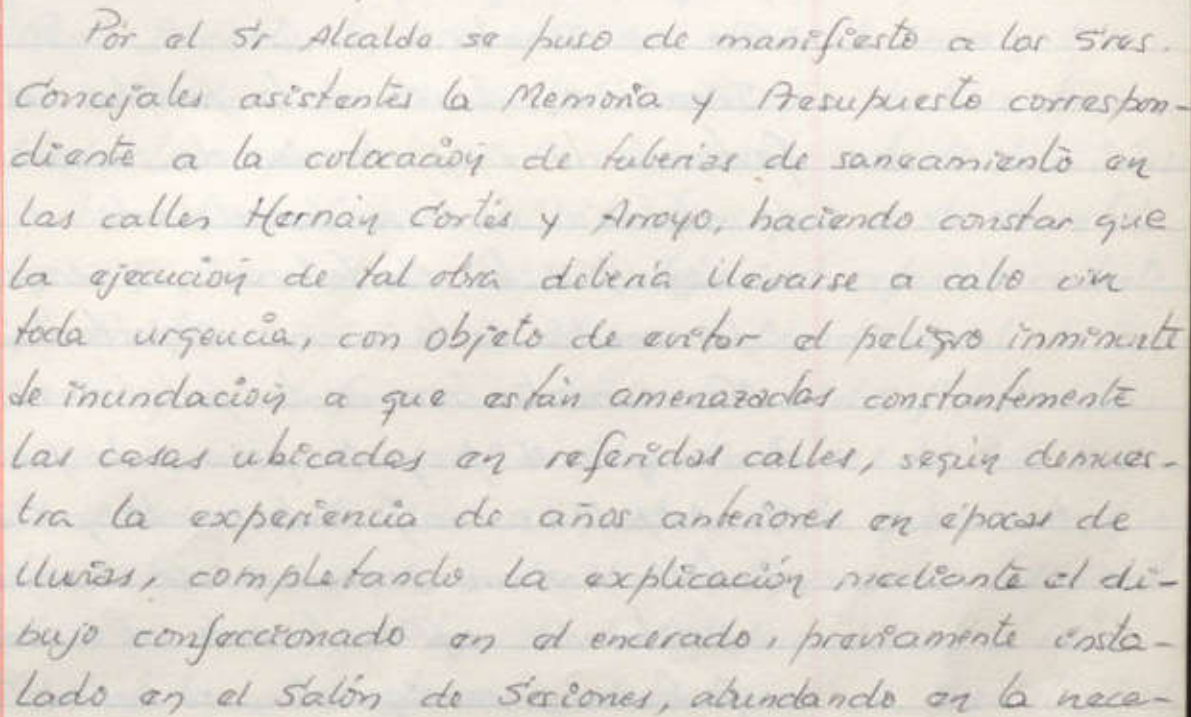 Por el Sr Alcalde se puso de manifiesto a los Sres.
Concejales asistentes la Memoria y Presupuesto correspon-
diente a la colocación de tuberías de saneamiento en
las calles Hernán Cortés y Arroyo, haciendo constar que
la ejecución de tal obra debería llevarse a cabo con
toda urgencia, con objeto de evitar el peligro inminente
de inundación a que están amenazadas constantemente
las casas ubicadas en referidas calles, según demues-
tra la experiencia de años anteriores en épocas de
lluvias, completando la explicación mediante el di-
bujo confeccionado en el encerado, previamente insta-
lado en el Salón de Sesiones, abundando en la nece-